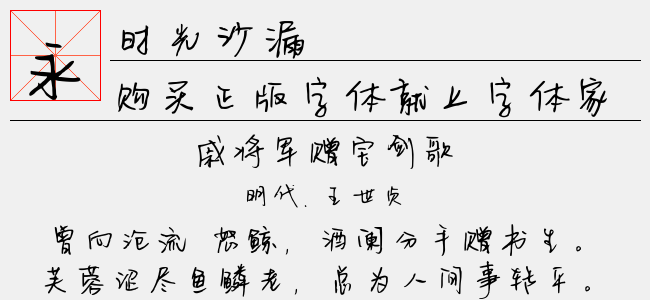 永
时光沙漏
购买正版字体就上字体家
戚将军赠宝剑歌
明代.王世贞
曾向沧流 怒鲸，酒阑分手赠书生。
芙蓉涩尽鱼鳞老，总为人间事转平。